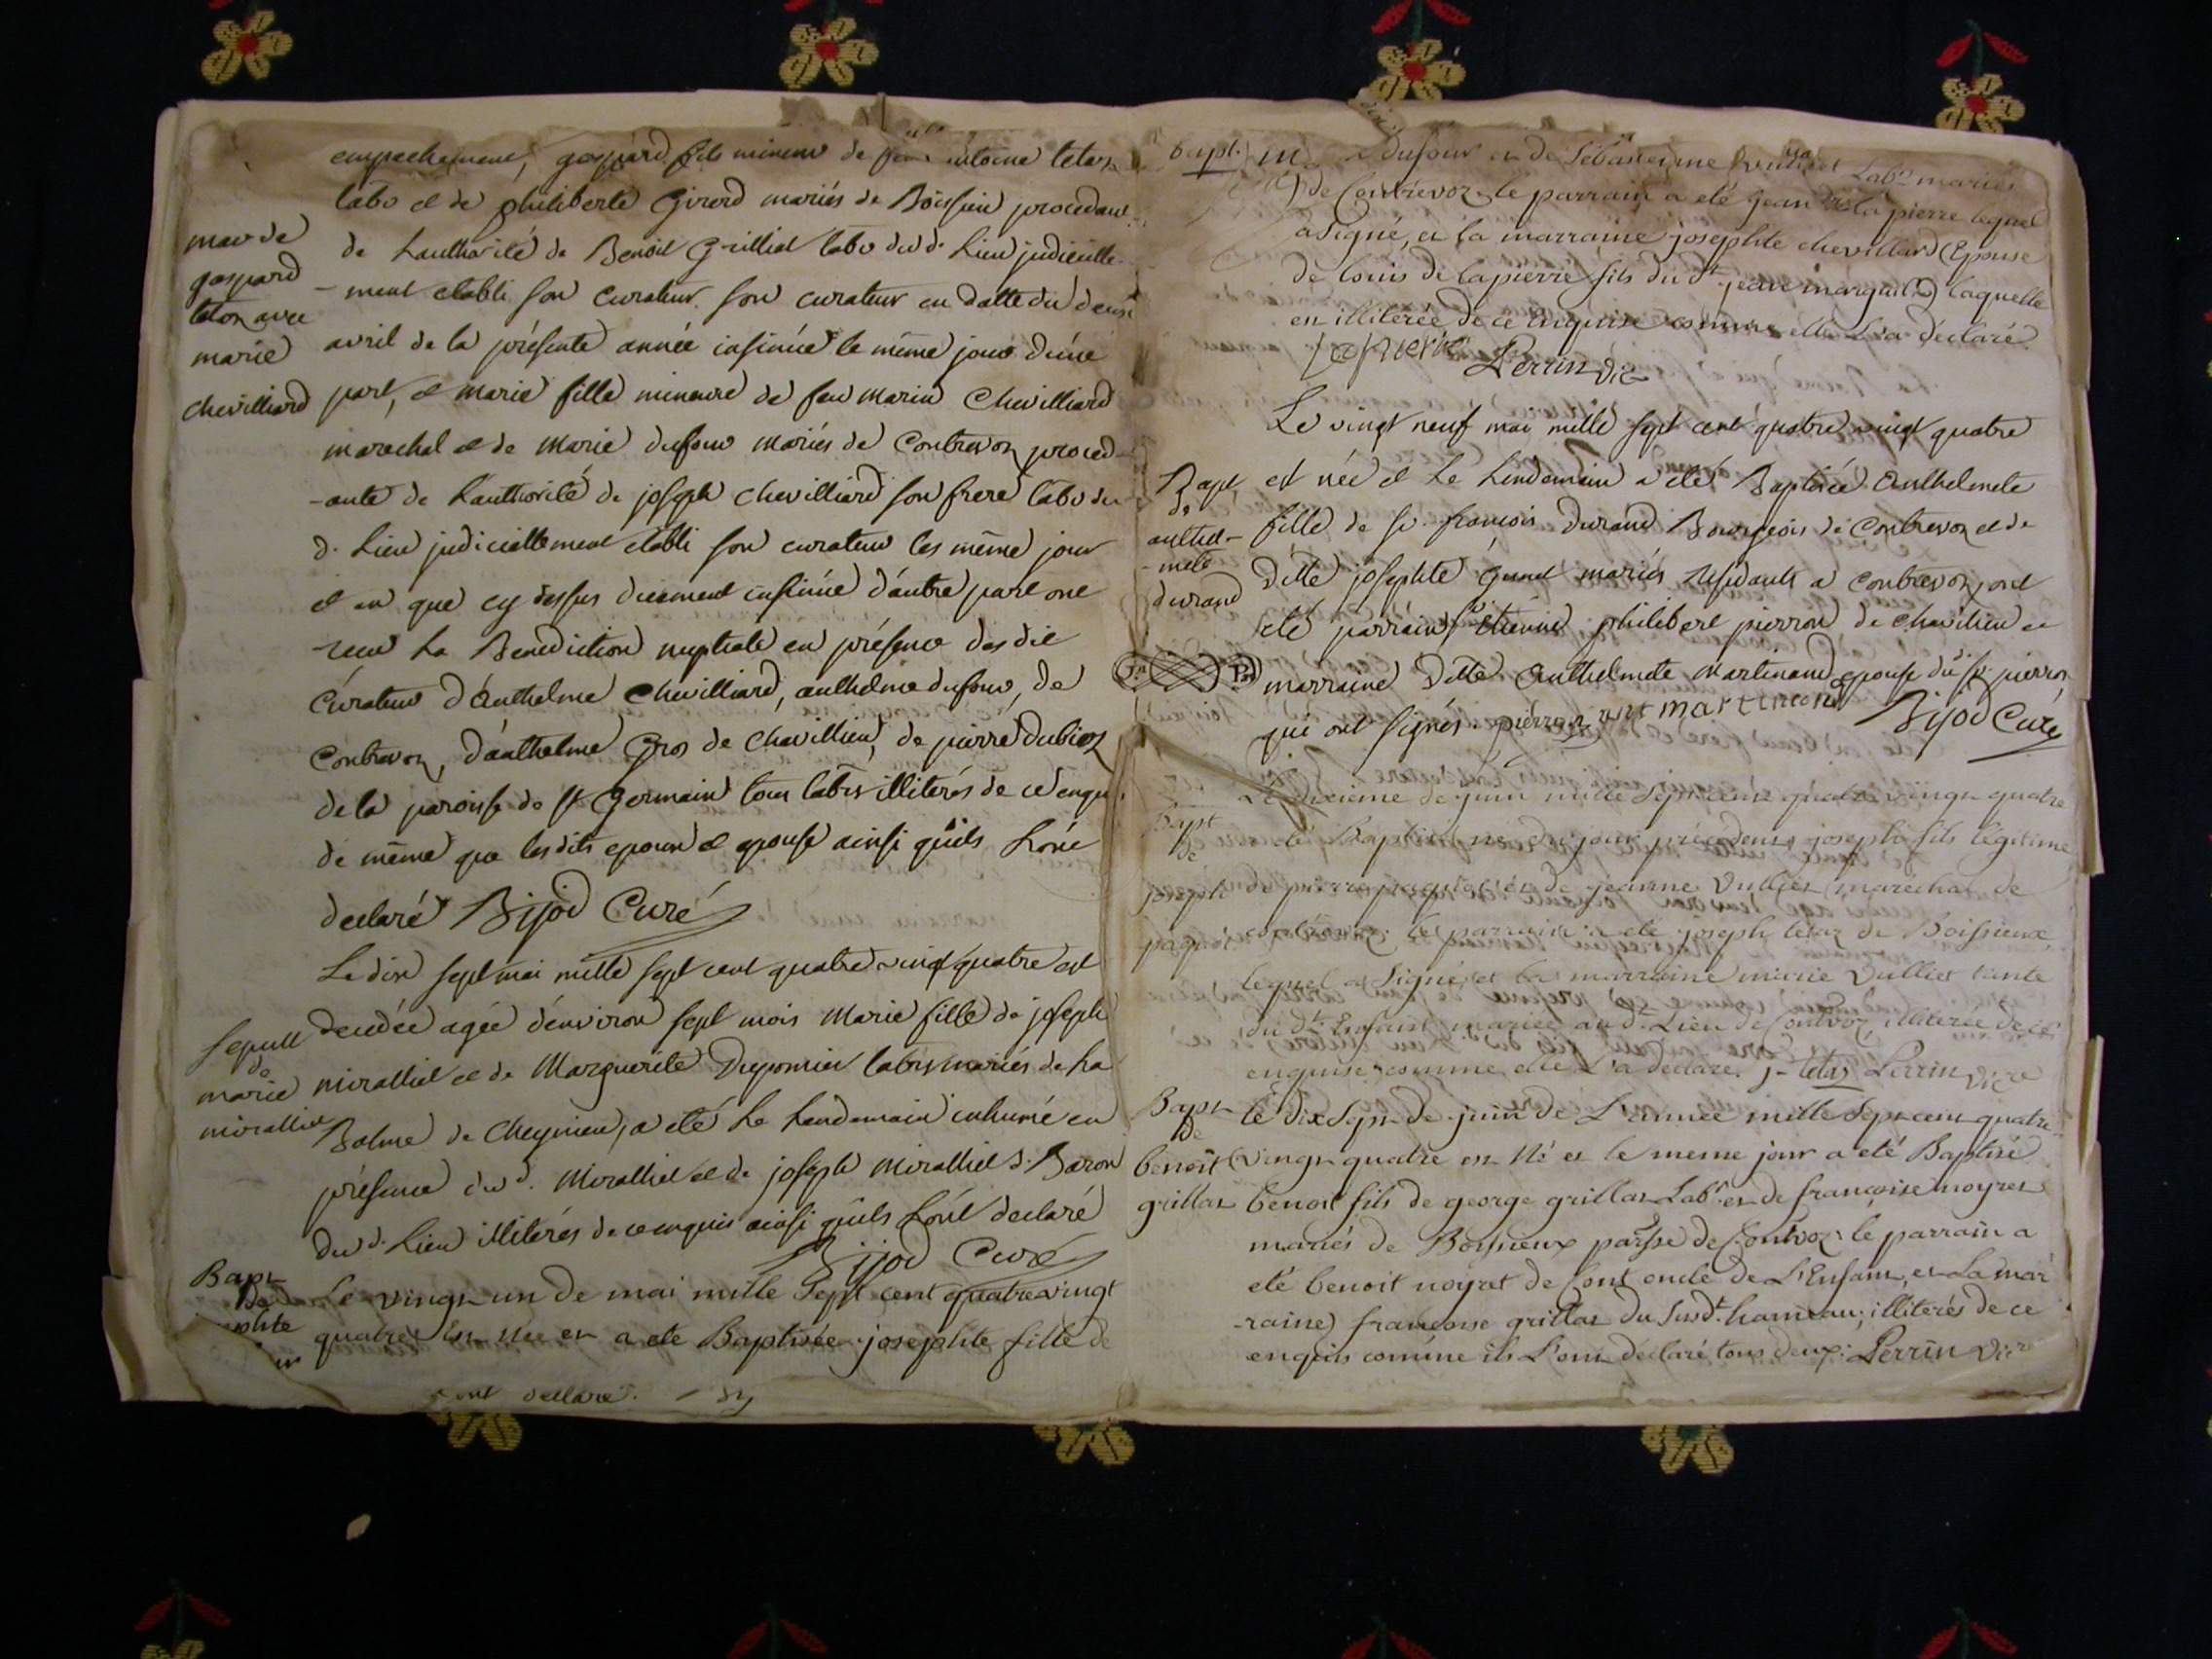 empechement, gaspard fils mineur de feu antoine tetaz
labr et de philiberte Girerd mariés de Boissieu procedant
mar de
gaspard
tetaz avec
marie
chevilliard
de L'authorité de Benoit Grilliat labr du d. Lieu judicielle-
-ment etabli son curateur son curateur en datte du deux
avril de la présente année insinüé le même jour d'une
part, et marie fille mineure de feu marin Chevilliard
marechal et de marie dufour mariés de Contrevoz proced-
-ante de L'authorité de joseph chevilliard son frere labr du
d. Lieu judiciellement etabli son curateur les même jour
et an que cy dessus duement insinüé d'autre part ont
recu La Benediction nuptiale en présence des dit
Curateur d'Anthelme Chevilliard, anthelme dufour, de
Contrevoz, d'anthelme Gros de chavillieu, de pierre Dubiez
de la paroisse de st Germain tous labrs illiterés de ce enqu.
de même que les dits epoux et epouse ainsi qu'ils L'ont
declaré Bijod Curé
Le dix sept mai mille sept cent quatre vingt quatre est
sepult
de
marie
miralliet
decedée agée d'environ sept mois Marie fille de joseph
miralliet et de Marguerite Dupomier labrs mariés de La
Balme de Cheynieu, a eté Le Lendemain inhumé en
présence du d. Miralliet et de joseph Miralliet d. Baron
du d. Lieu illiterés de ce enquis ainsi qu'ils L'ont declaré
Bijod Curé
Bapt
de
Le vingt un de mai mille Sept cent quatre vingt
quatre Est née et a eté Baptisée josephte fille de
ont declaré.
bapt.
dufour et de Sébastienne Labr mariés
de Contrevoz le parrain a eté jean la pierre lequel
a Signé, et la marraine josephte chevillard (Epouse
de louis de lapierre fils du dt jean marguil.) laquelle
en illiterée de ce Enquise comme elle L'a déclaré.
lapierre Perrin Vic
Le vingt neuf mai mille sept cent quatre vingt quatre
Bapt
de
anthel-
-mete
durand
est née et Le Lendemain a eté Baptisée Anthelmete
fille de sr. françois Durand Bourgeois de Contrevoz et de
Dlle josephte mariés residants a Contrevoz, ont
eté parrain sr etienne philibert pierron de chavillieu et
marraine Dlle Anthelmete Martinand epouse du d. sr pierron
qui ont signés. pierron ant martinand Bijod Curé
Le dixieme de juin mille Sept cent quatre vingt quatre
Bapt
de
joseph
Baptisé né du jour précedent joseph fils légitime
de pierre et de jeanne Vulliet marechal de
Contrevoz. le parrain a eté joseph tetaz de Boissieux,
lequel a Signé et la marraine marie Vulliet tante
du dt Enfant mariée au d. Lieu de Contvoz, illiterée de ce
enquise comme elle L'a déclaré. j. tetaz Perrin Vic
Bapt
de
benoit
grillat
le dix Sept de juin de L'année mille Sept cent quatre
vingt quatre est Né et le meme jour a eté Baptisé
benoit fils de george grillat Labr. et de françoise noyret
mariés de Boissieux parsse de Contvoz. le parrain a
eté benoit noyret de Cont oncle de L'Enfant, et La mar
-raine françoise grillat du Susdt. hameau; illiterés de ce
enquis comme ils L'ont déclaré tous deux. Perrin Vic